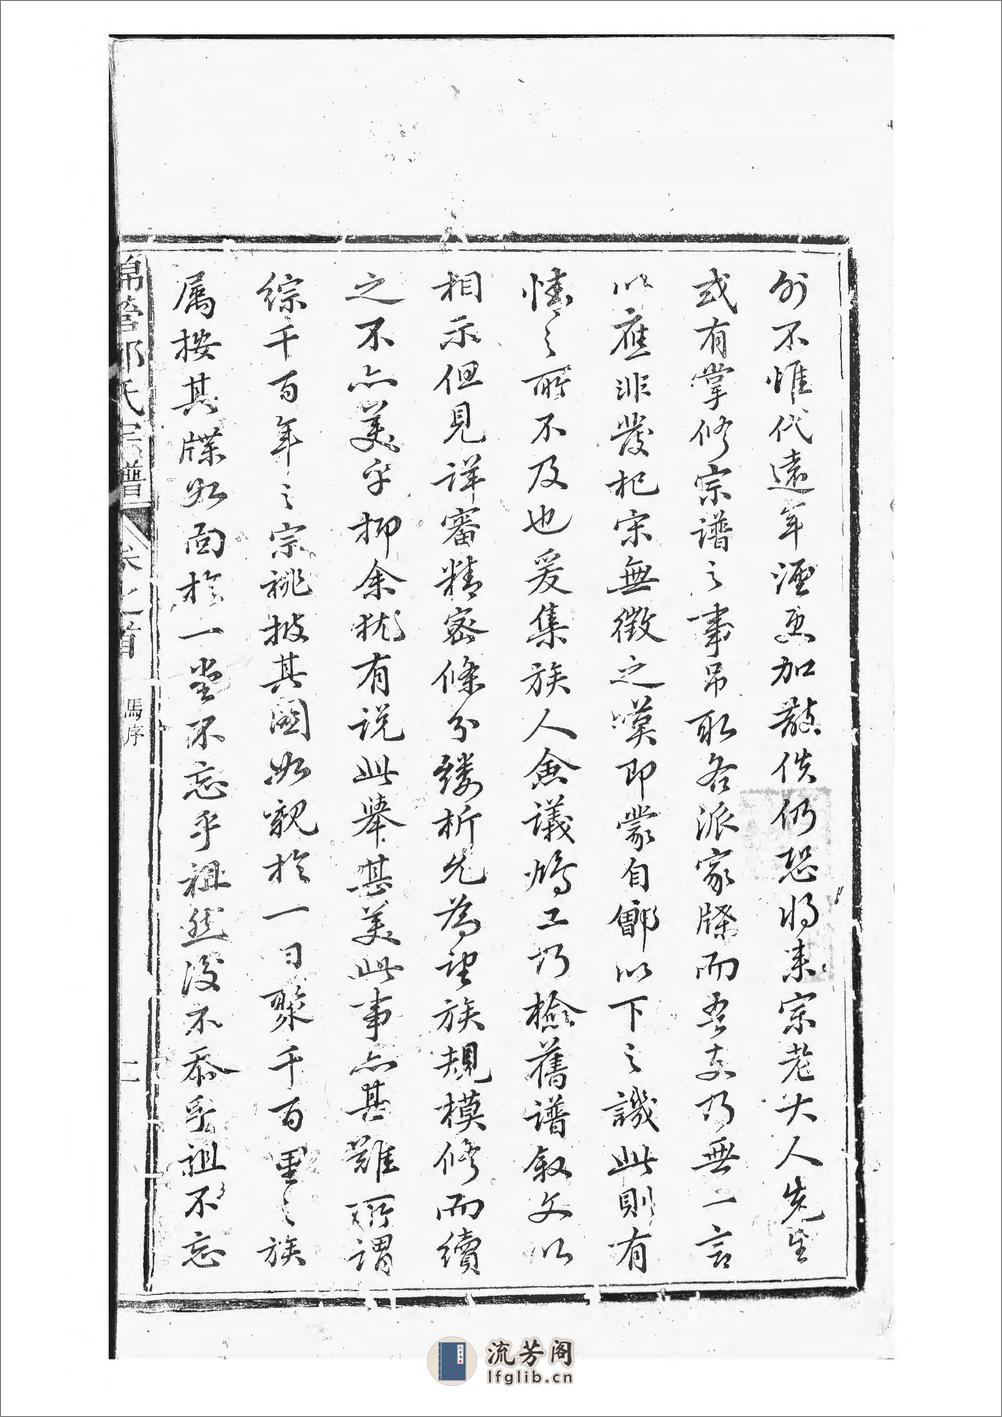 外不惟代遠年湮更加散佚仍恐将来宗老大人先生
或有掌修宗谱之事吊取各派家牒而吾支乃無一言
以應非發杞宋無徵之嘆即蒙自鄶以下之譏此則有
情之所不及也爰集族人僉議鳩工乃檢舊谱叙文以
相示但見详審精密條分缕析允為望族規模修而續
之不亦美乎抑余犹有说此舉甚美此事亦甚難所謂
綜千百年之宗祧披其圖如親於一日聚千百里之族
属按其牒如面於一堂不忘乎祖然後不忝乎祖不忘
錦營鄭氏宗譜
卷之首
馮序
二
流芳阁
lfglib.cn